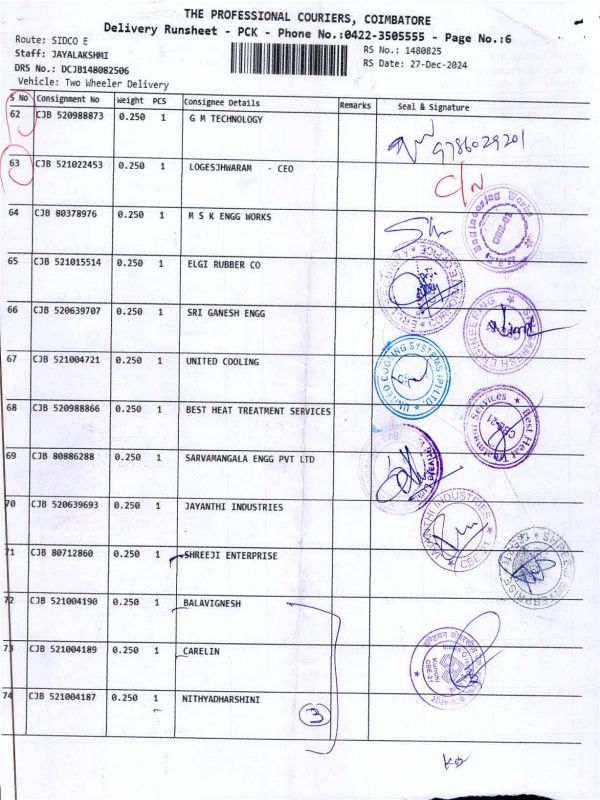 THE PROFESSIONAL COURIERS, COIMBATORE
Delivery Runsheet - PCK - Phone No.:0422-3505555 - Page No.:6
Route: SIDCO E
Staff: JAYALAKSHMI
DRS No.: DCJB148082506
Vehicle: Two Wheeler Delivery
RS No.: 1480825
RS Date: 27-Dec-2024
S No Consignment No Weight PCS Consignee Details Remarks Seal & Signature
62 CJB 520988873 0.250 1 G M TECHNOLOGY
9786029201
63 CJB 521022453 0.250 1 LOGESJHWARAM - CEO
64 CJB 80378976 0.250 1 M S K ENGG WORKS
65 CJB 521015514 0.250 1 ELGI RUBBER CO
66 CJB 520639707 0.250 1 SRI GANESH ENGG
67 CJB 521004721 0.250 1 UNITED COOLING
UNITED COOLING SYSTEMS (P) LTD.
68 CJB 520988866 0.250 1 BEST HEAT TREATMENT SERVICES
Best Heat Treatment Services
CBE-21
69 CJB 80886288 0.250 1 SARVAMANGALA ENGG PVT LTD
70 CJB 520639693 0.250 1 JAYANTHI INDUSTRIES
JAYANTHI INDUSTRIES
CBE-21
71 CJB 80712860 0.250 1 SHREEJI ENTERPRISE
72 CJB 521004190 0.250 1 BALAVIGNESH
73 CJB 521004189 0.250 1 CARELIN
74 CJB 521004187 0.250 1 NITHYADHARSHINI
Kurichi
CBE-21
3